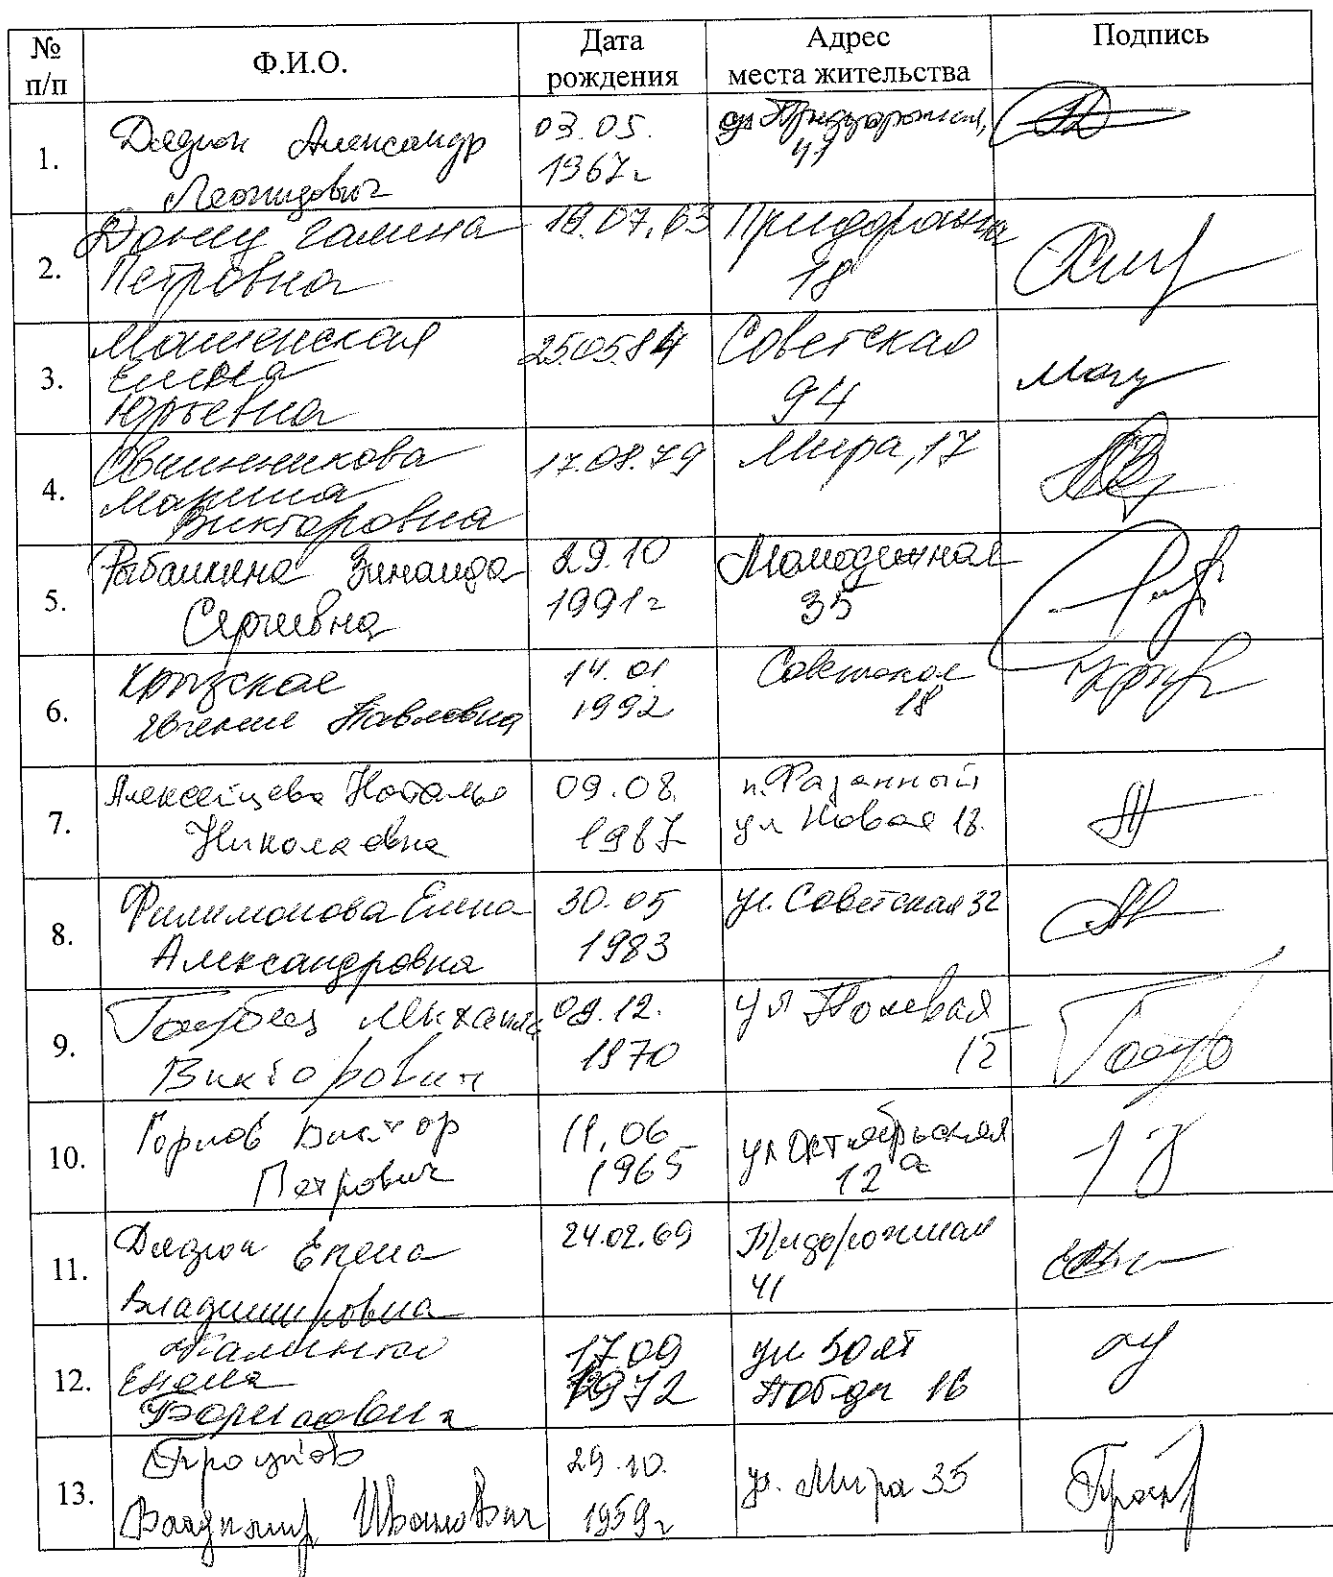 № п/п Ф.И.О. Дата рождения Адрес места жительства Подпись
1. Дядюн Александр Леонидович 03.05. 1967г ул Придорожная, 41
2. Галина Петровна 19.07.63 Придорожна 18
3. Елена Юрьевна 25.05.84 Советская 94
4. Овчинникова Марина Викторовна 17.08.79 Мира, 17
5. Зинаида Сергеевна 29.10 1991г Молодежная 35
6. Евгения Павловна 14.01 1992 Советская 18
7. Алексейцева Наталья Николаевна 09.08. 1987 п. Фазанный ул Новая 18.
8. Филимонова Елена Александровна 30.05 1983 ул. Советская 32
9. Голубец Михаил Викторович 09.12. 1970 ул Полевая 15
10. Горлов Виктор Петрович 11.06 1965 ул Октябрьская 12а
11. Дядюн Елена Владимировна 24.02.69 Придорожная 41
12. Елена Борисовна 17.09 1972 ул 50 лет Победы 16
13. Владимир Иванович 29.10. 1959г ул. Мира 35